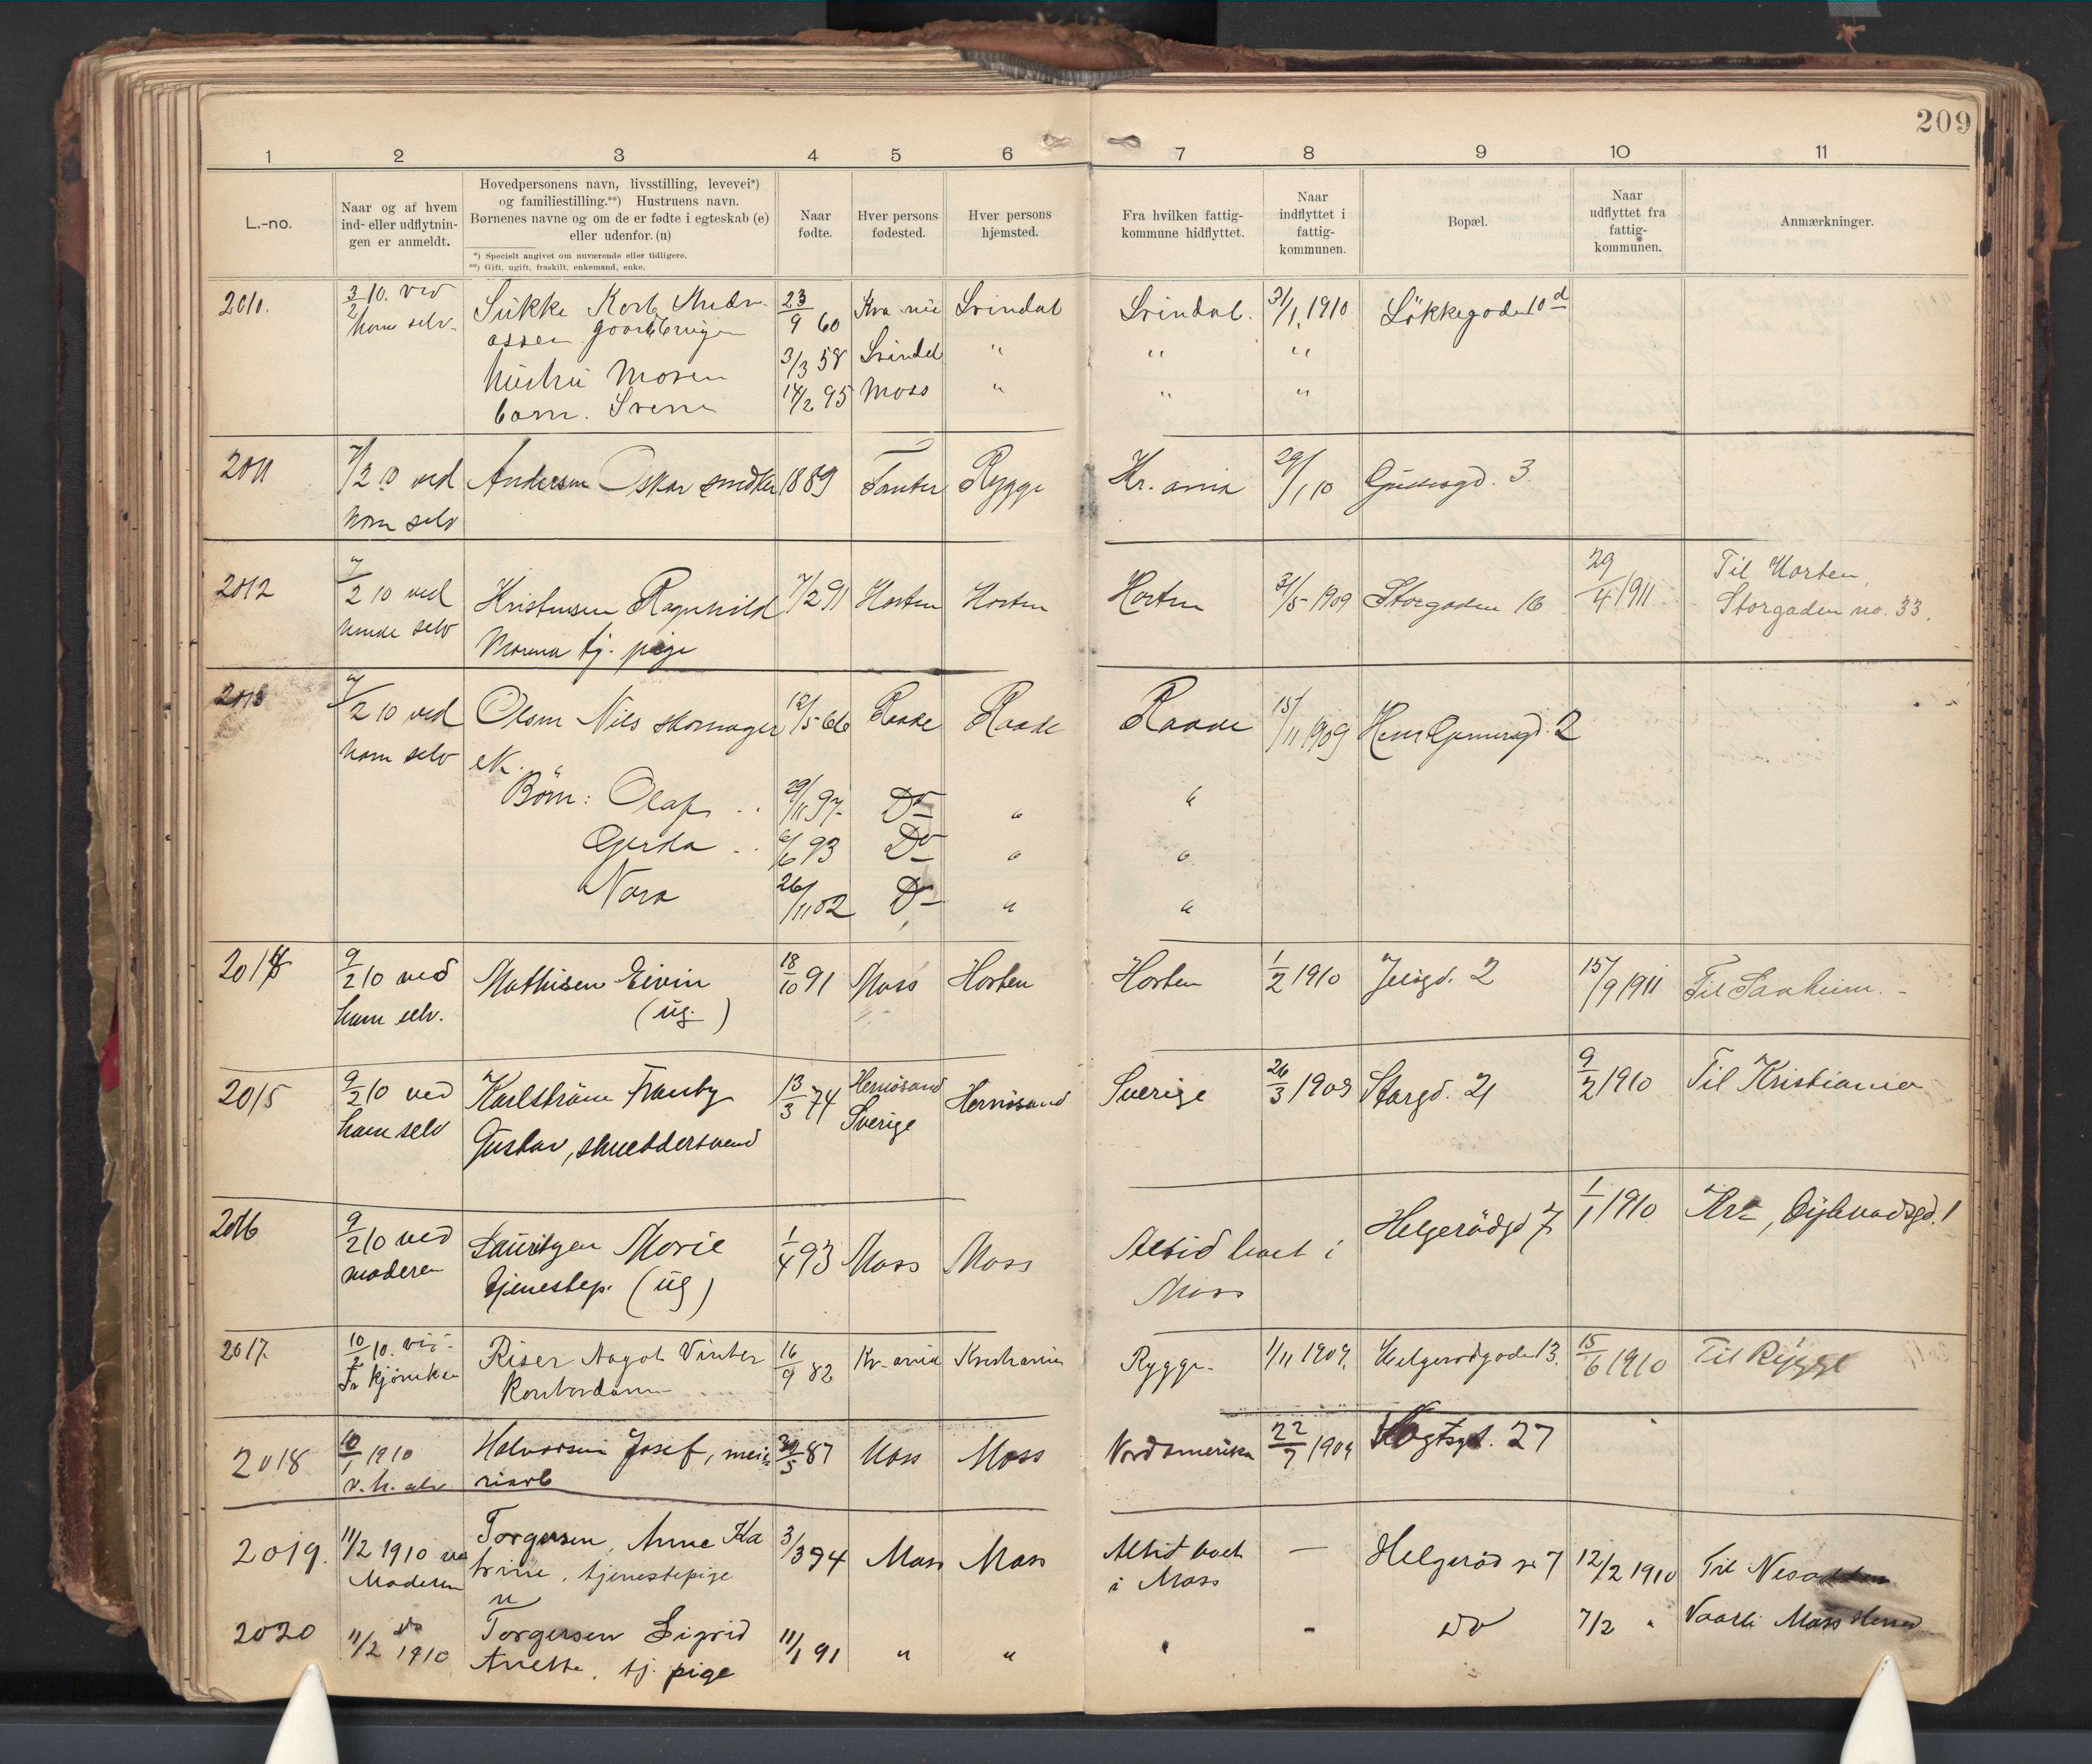 209
1 2 3 4 5 6 7 8 9 10 11
L.-no.
Naar og af hvem
ind- eller udflytnin-
gen er anmeldt.
Hovedpersonens navn, livsstilling, levevei*)
og familiestilling.**) Hustruens navn.
Børnenes navne og om de er fødte i egteskab (e)
eller udenfor. (u)
*) Specielt angivet om nuværende eller tidligere.
**) Gift, ugift, fraskilt, enkemand, enke.
Naar
fødte.
Hver persons
fødested.
Hver persons
hjemsted.
Fra hvilken fattig-
kommune hidflyttet.
Naar
indflyttet i
fattig-
kommunen.
Bopæl.
Naar
udflyttet fra
fattig-
kommunen.
Anmærkninger.
2010. 3/2 10. ved 23/9 60 Svindal Svindal. 31/1, 1910 10 d
ham selv.
3/3 58 " " "
hustru 14/2 95 Moss " " "
barn.
2011 7/2 10 ved Andersen Oskar 1889 Rygge Kr. ania 29/1 10 3.
ham selv
2012 7/2 10 ved Kristensen Ragnhild 7/2 91 Horten Horten Horten 31/5 1909 Storgaden 16 29/4 1911 Til Horten,
hende selv tj. pige Storgaden no. 33.
2013 7/2 10 ved Olsen Nils skomager 12/5 66 Raade Raade Raade 15/11 1909 2
ham selv ek.
Børn: Olaf 29/11 97 Do " "
Gerda 6/6 93 Do " "
Nora 26/11 02 Do " "
2014 9/2 10 ved Mathisen Eivin 18/10 91 Moss Horten Horten 1/2 1910 Jeløgd. 2 15/9 1911 Til Saaheim.
ham selv. (ug.)
2015 9/2 10 ved Karlstrøm 13/3 74 Hernøsand Hernøsand Sverige 26/3 1909 Storgd. 21 9/2 1910 Til Kristiania
ham selv Gustav, skreddersvend Sverige
2016 9/2 10 ved Lauritzen Marie 1/4 93 Moss Moss Altid boet i Helgerødgd 7 1/1 1910
moderen tjenestep. (ug) Moss
2017. 10/2 10. Riser Dagot Vinter 16/9 82 Kr-ania Kristiania Rygge 1/11 1909. Helgerødgaden 13. 15/6 1910 Til Rygge
Kontordame
2018 10/1 1910 Halvorsen Josef, mei- 5 87 Moss Moss Nordamerika 22/7 1909 Vogtsgt. 27
v. h. selv
2019. 11/2 1910 Torgersen, Anne Ka 3/3 94 Moss Moss Altid boet — Helgerød gt 7 12/2 1910 Til Nesodden
Moderen trine, tjenestepige i Moss
u
2020 11/2 1910 do Torgersen Sigrid 11/1 91 " " " - do 7/2 " Vaarli Moss Herred
Anette, tj. pige